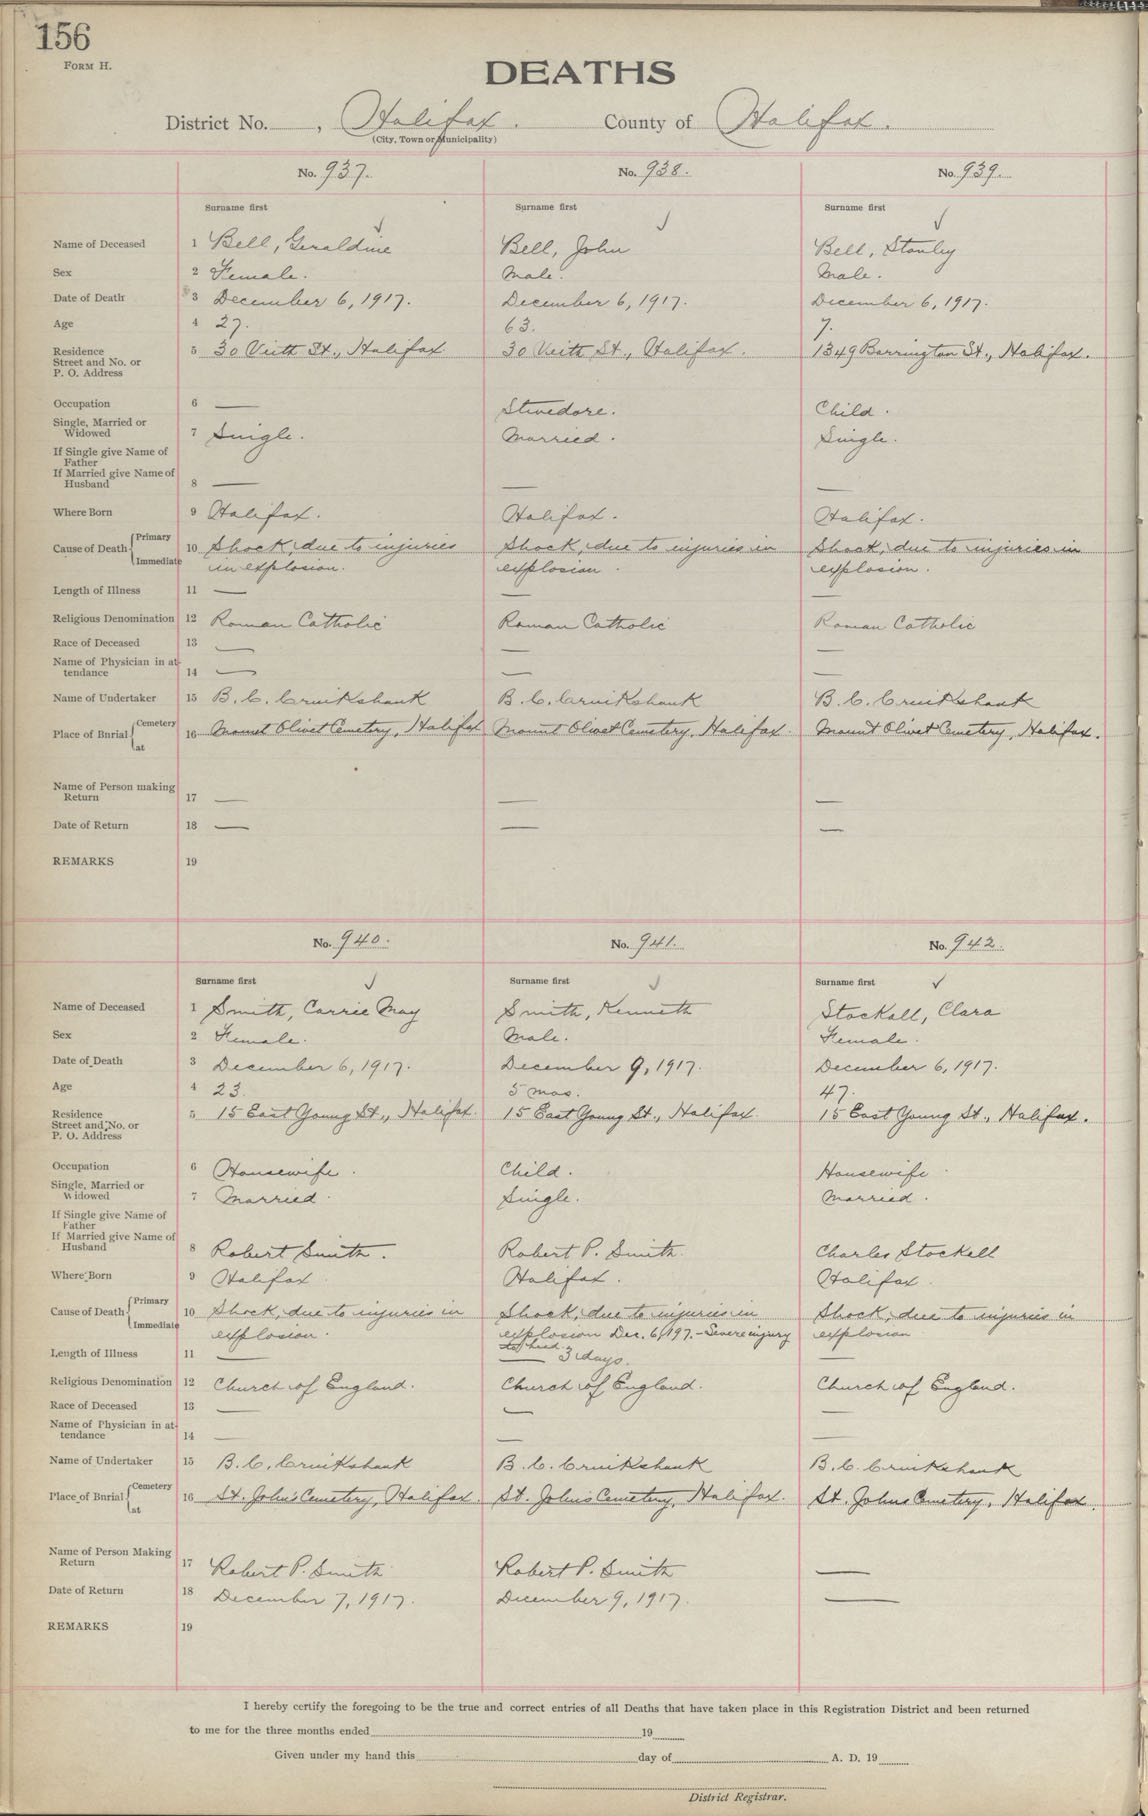 156
FORM H.
DEATHS
District No. , Halifax. County of Halifax.
(City, Town or Municipality)
No. 937. No. 938. No. 939.
Surname first Surname first Surname first
Name of Deceased 1 Bell, Geraldine Bell, John Bell, Stanley
Sex 2 Female. Male. Male.
Date of Death 3 December 6, 1917. December 6, 1917. December 6, 1917.
Age 4 27. 63. 7.
Residence
Street and No. or 5 30 Veith St., Halifax 30 Veith St., Halifax. 1349 Barrington St., Halifax.
P. O. Address
Occupation 6 — Stevedore. Child.
Single, Married or
Widowed 7 Single. Married. Single.
If Single give Name of
Father
If Married give Name of
Husband 8 — — —
Where Born 9 Halifax. Halifax. Halifax.
Cause of Death { Primary
10 Shock, due to injuries Shock, due to injuries in Shock, due to injuries in
Immediate in explosion. explosion. explosion.
Length of Illness 11 — — —
Religious Denomination 12 Roman Catholic Roman Catholic Roman Catholic
Race of Deceased 13 — — —
Name of Physician in at-
tendance 14 — — —
Name of Undertaker 15 B. C. Cruikshank B. C. Cruikshank B. C. Cruikshank
Place of Burial { Cemetery
at 16 Mount Olivet Cemetery, Halifax Mount Olivet Cemetery, Halifax. Mount Olivet Cemetery, Halifax.
Name of Person making
Return 17 — — —
Date of Return 18 — — —
REMARKS 19
No. 940. No. 941. No. 942.
Surname first Surname first Surname first
Name of Deceased 1 Smith, Carrie May Smith, Kenneth Stockall, Clara
Sex 2 Female. Male. Female.
Date of Death 3 December 6, 1917. December 9, 1917. December 6, 1917.
Age 4 23. 5 mos. 47.
Residence
Street and No. or 5 15 East Young St., Halifax. 15 East Young St., Halifax. 15 East Young St., Halifax.
P. O. Address
Occupation 6 Housewife. Child. Housewife
Single, Married or
Widowed 7 Married. Single. Married.
If Single give Name of
Father
If Married give Name of
Husband 8 Robert Smith. Robert P. Smith. Charles Stockall
Where Born 9 Halifax. Halifax. Halifax.
Cause of Death { Primary
10 Shock, due to injuries in Shock, due to injuries in Shock, due to injuries in
Immediate explosion. explosion Dec. 6, 197. - Severe injury explosion
to head.
Length of Illness 11 — — 3 days. —
Religious Denomination 12 Church of England. Church of England. Church of England.
Race of Deceased 13 — — —
Name of Physician in at-
tendance 14 — — —
Name of Undertaker 15 B. C. Cruikshank B. C. Cruikshank B. C. Cruikshank
Place of Burial { Cemetery
at 16 St. John's Cemetery, Halifax. St. John's Cemetery, Halifax. St. Johns Cemetery, Halifax.
Name of Person Making
Return 17 Robert P. Smith Robert P. Smith —
Date of Return 18 December 7, 1917. December 9, 1917. —
REMARKS 19
I hereby certify the foregoing to be the true and correct entries of all Deaths that have taken place in this Registration District and been returned
to me for the three months ended 19
Given under my hand this day of A. D. 19
District Registrar.